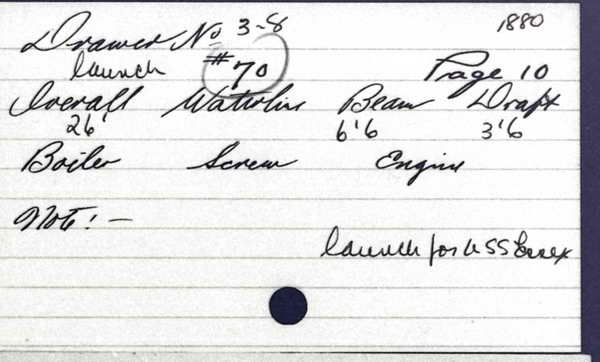 Drawer No 3-8 1880
launch #70 Page 10
Overall Waterline Beam Draft
26' 6'6 3'6
Boiler Screw Engine
Note: -
launch for USS Essex